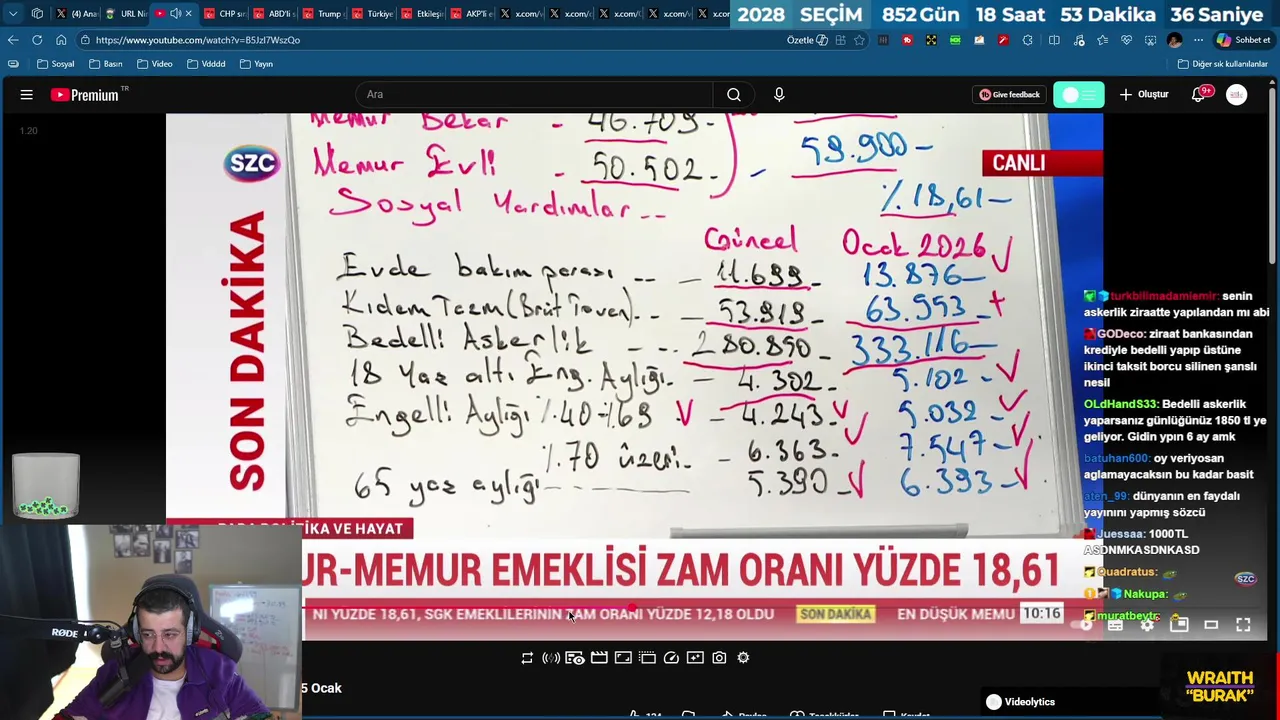 2028 SEÇİM 852 Gün 18 Saat 53 Dakika 36 Saniye
(4) Ana
URL Nir
CHP sır
ABD'li s
Trump
Türkiye
Etkileşin
AKP'li e
x.com/
x.com/
x.com/
x.com/
x.com
https://www.youtube.com/watch?v=B5JzI7WszQo
Özetle
Sohbet et
Sosyal
Basın
Video
Vdddd
Yayın
Diğer sık kullanılanlar
Premium TR
Ara
Give feedback
Oluştur
9+
1.20
SZC
CANLI
SON DAKİKA
Memur Bekar - 46.709-
Memur Evli - 50.502- - 59.900-
Sosyal Yardımlar -- % 18,61-
Güncel Ocak 2026
Evde bakım parası -- - 11.699- 13.876-
Kıdem Tazm (Brüt Tavan)-- - 53.919- 63.953 +
Bedelli Askerlik --- 280.850- 333.116-
18 Yaş altı Eng. Aylığı - 4.302- 5.102-
Engelli Aylığı %40-%69 - 4.243- 5.032-
%70 üzeri - 6.363- 7.547-
65 yaş aylığı - 5.390- 6.393-
turkbilimadamiemir: senin
askerlik ziraatte yapılandan mı abi
GODeco: ziraat bankasından
krediyle bedelli yapıp üstüne
ikinci taksit borcu silinen şanslı
nesil
OLdHandS33: Bedelli askerlik
yaparsanız günlüğünüz 1850 tl ye
geliyor. Gidin ypın 6 ay amk
batuhan600: oy veriyosan
aglamayacaksın bu kadar basit
aten_99: dünyanın en faydalı
yayınını yapmış sözcü
Juessaa: 1000TL
ASDNMKASDNKASD
Quadratus:
Nakupa:
muratbeytr:
SZC
İKA VE HAYAT
UR-MEMUR EMEKLİSİ ZAM ORANI YÜZDE 18,61
NI YÜZDE 18,61, SGK EMEKLİLERİNİN ZAM ORANI YÜZDE 12,18 OLDU
SON DAKİKA
EN DÜŞÜK MEMU
10:16
RØDE
5 Ocak
Videolytics
WRAITH
"BURAK"